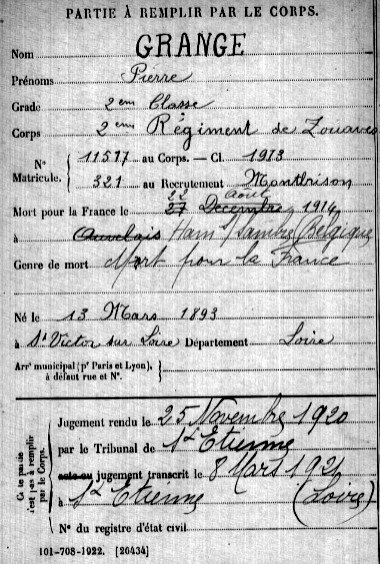 PARTIE À REMPLIR PAR LE CORPS.
Nom GRANGE
Prénoms Pierre
Grade 2ème Classe
Corps 2ème Régiment de Zouaves
N° Matricule. 11517 au Corps. — Cl. 1913
321 au Recrutement Montbrison
22 Août
Mort pour la France le 27 Décembre 1914
à Auvelais Ham s/ Sambre (Belgique
Genre de mort Mort pour la France
Né le 13 Mars 1893
à St Victor sur Loire Département Loire
Arr' municipal (p' Paris et Lyon),
à défaut rue et N°.
Ce te partie n'est pas à remplir par le Corps.
Jugement rendu le 25 Novembre 1920
par le Tribunal de St Etienne
acte ou jugement transcrit le 8 Mars 1921
à St Etienne (Loire)
N° du registre d'état civil
101-708-1922. [26434]